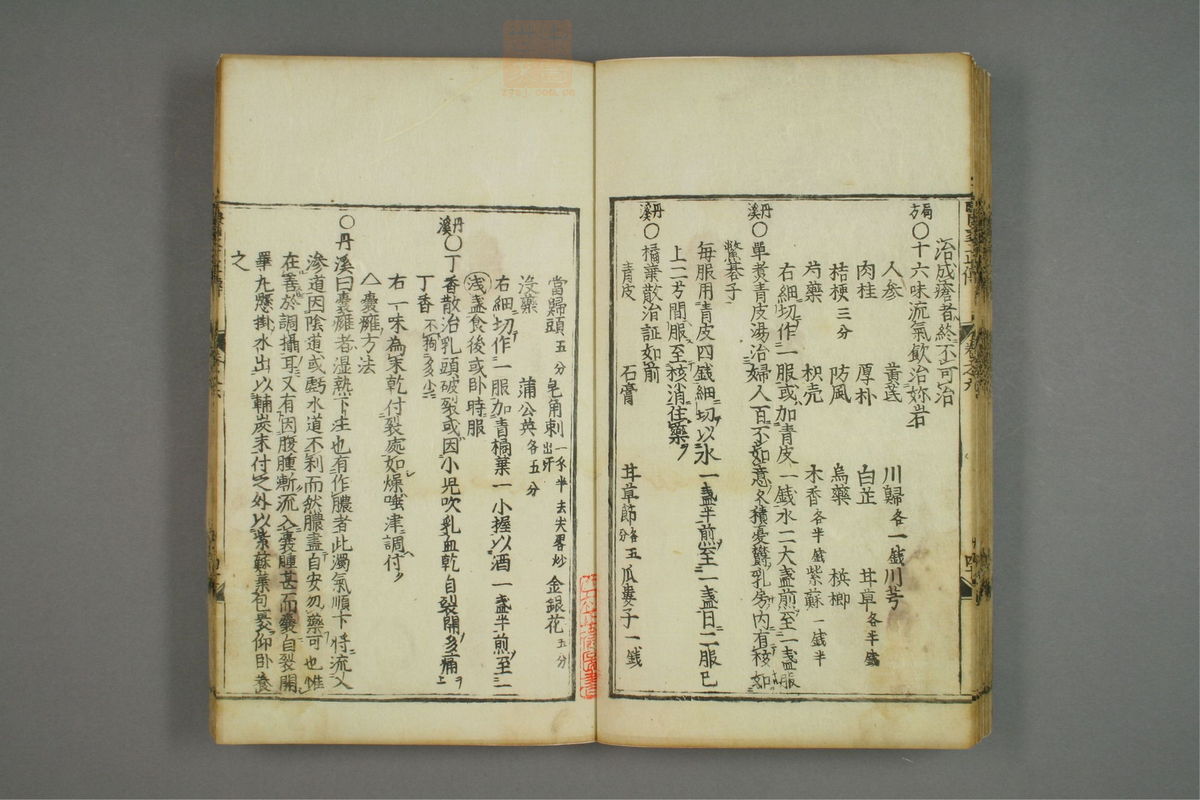 治成瘡者終不可治
局方○十六味流氣飲治妳岩
人参 黄芪 川歸各一錢 川芎
肉桂 厚朴 白芷 甘草各半錢
桔梗三分 防風 烏藥 梹榔
芍藥 枳売 木香各半錢 紫蘇一錢半
右細切作一服或加青皮一錢水二大盞煎至一盞服
丹溪○單煑青皮湯治婦人百不如意久積憂欝乳房内有核如
鱉碁子
毎服用青皮四錢細切以水一盞半煎至一盞日二服已
上二方間服至核消住藥
丹溪○橘葉散治証如前
青皮 石膏 甘草節各五分 瓜蔞子一錢
當歸頭五分 皂角刺一水半去尖畧炒出汗 金銀花五分
没藥 蒲公英各五分
右細切作一服加青橘葉一小握以酒一盞半煎至一
淺盞食後或卧時服
丹溪○丁香散治乳頭破裂或因小児吹乳血乾自裂開多痛
丁香不拘多少
右一味為末乾付裂處如燥唾津調付
囊癰方法
○丹溪曰囊癰者湿熱下注也有作膿者此濁氣順下将流入
滲道因陰道或虧水道不利而然膿盡自安勿藥可也惟
在善於調攝耳又有因腹腫漸流入囊腫甚而囊自裂開
睪丸懸掛水出以麩炭末付之外以紫蘇葉包裹仰卧養
之